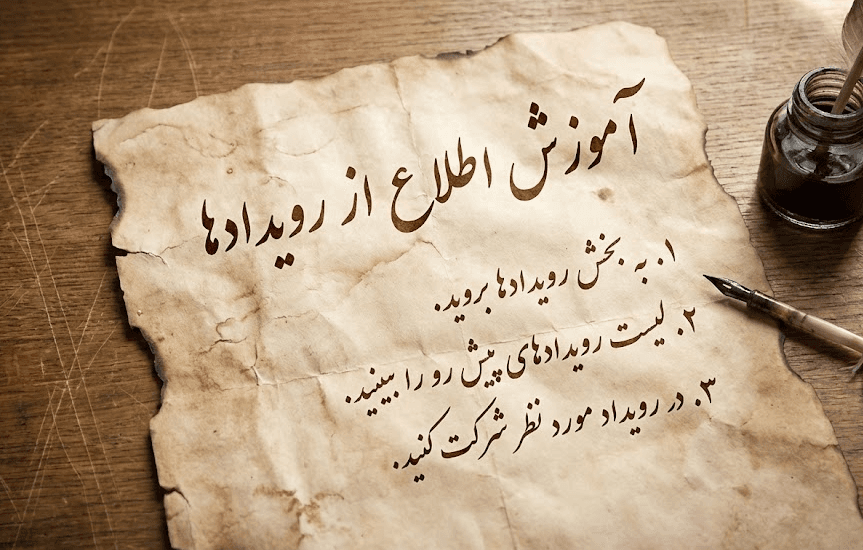 آموزش اطلاع از رویدادها
۱. به بخش رویدادها بروید.
۲. لیست رویدادهای پیش رو را ببینید.
۳. در رویداد مورد نظر شرکت کنید.